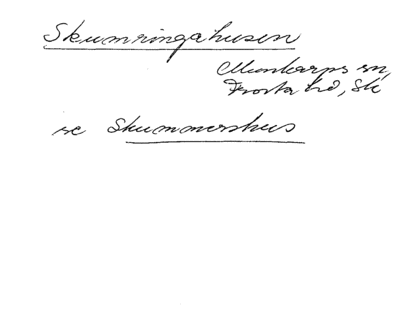 Skumringahusen
Munkarps sn,
Frosta hd, Sk
se Skummershus